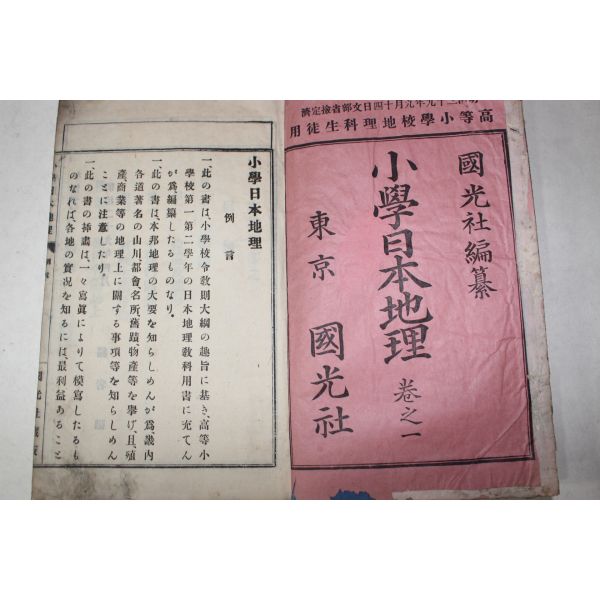 年九月十四日文部省檢定濟
高等小學校地理科生徒用
國光社編纂
小學日本地理 卷之一
東京 國光社
小學日本地理
例言
一、此の書は、小學校令敎則大綱の趣旨に基き、高等小
學校第一第二學年の日本地理敎科用書に充てん
が爲、編纂したるものなり。
一、此の書は、本邦地理の大要を知らしめんが爲、畿內
各道著名の山川、都會、名所、舊蹟、物產等を擧げ、且、殖
產商業等の地理上に關する事項等を知らしめん
ことに注意したり。
一、此の書の揷畫は、一々寫眞によりて模寫したるも
のなれば、各地の實況を知るには、最利益あること